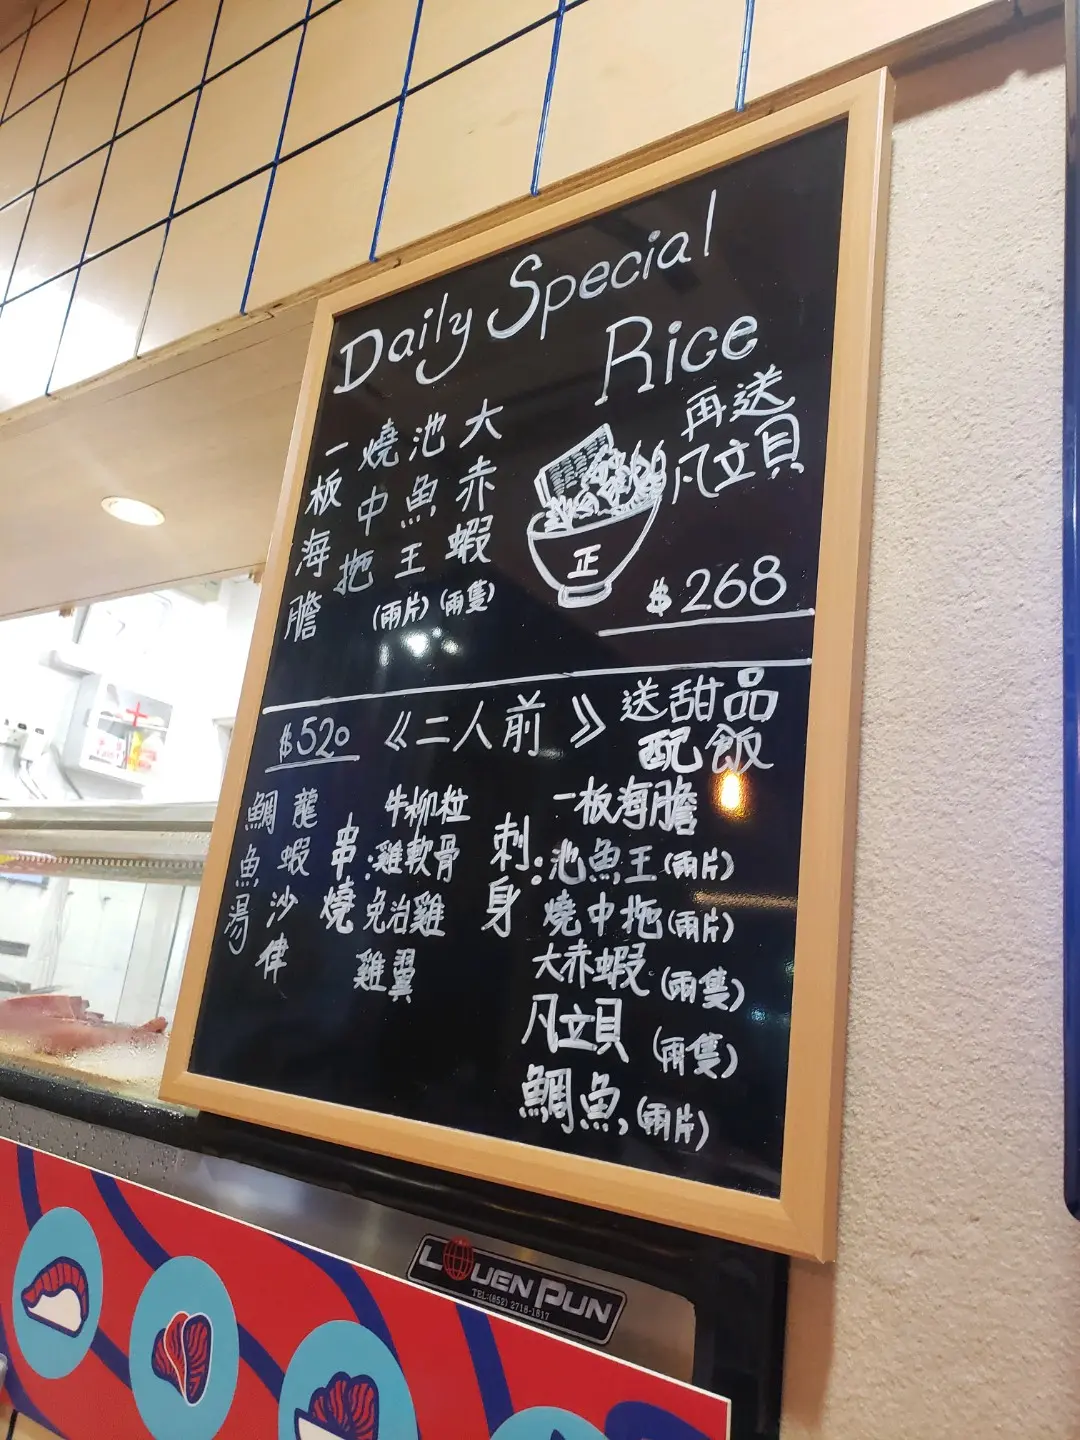 Daily Special
Rice
再送
凡立貝
大赤蝦(兩隻)
池魚王(兩片)
燒中拖
一板海膽
正
$268
$520
《二人前》
送甜品
配飯
刺身:
一板海膽
池魚王(兩片)
燒中拖(兩片)
大赤蝦(兩隻)
凡立貝(兩隻)
鯛魚,(兩片)
串燒:
牛柳粒
雞軟骨
免治雞
雞翼
龍蝦沙律
鯛魚湯
LOUEN PUN
TEL:(852) 2718-1817